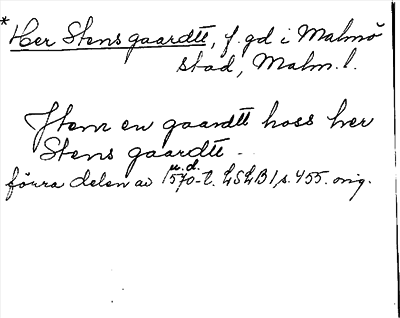 * Her Stens gaardtt, f. gd i Malmö
stad, Malm. l.
Item en gaardtt hoss her
Stens gaardtt
u.d.
förra delen av 1570-t. LSLB 1 s. 455. orig.